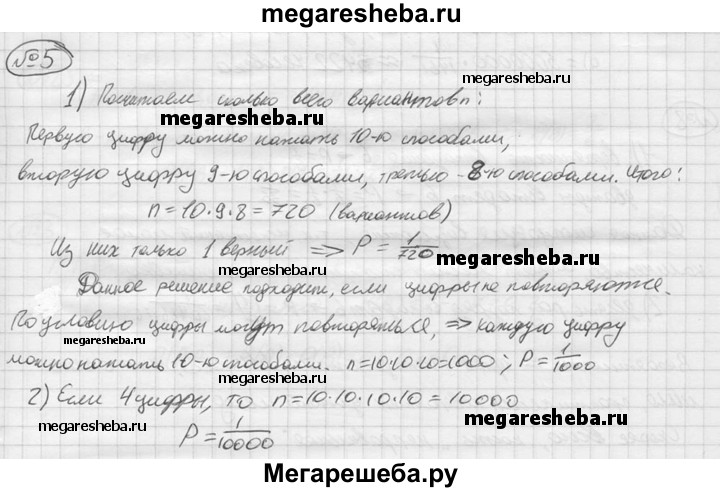 megaresheba.ru
№5
1) Посчитаем сколько всего вариантов n:
megaresheba.ru
megaresheba.ru
Первую цифру можно нажать 10-ю способами,
вторую цифру 9-ю способами, третью - 8-ю способами. Итого:
n = 10 · 9 · 8 = 720 (вариантов)
Из них только 1 верный => P = 1/720
megaresheba.ru
megaresheba.ru
Данное решение подходит, если цифры не повторяются.
По условию цифры могут повторяться, => каждую цифру
megaresheba.ru
megaresheba.ru
можно нажать 10-ю способами. n = 10·10·10 = 1000; P = 1/1000
2) Если 4 цифры, то n = 10 · 10 · 10 · 10 = 10000
megaresheba.ru
megaresheba.ru
P = 1/10000
Мегарешеба.ру